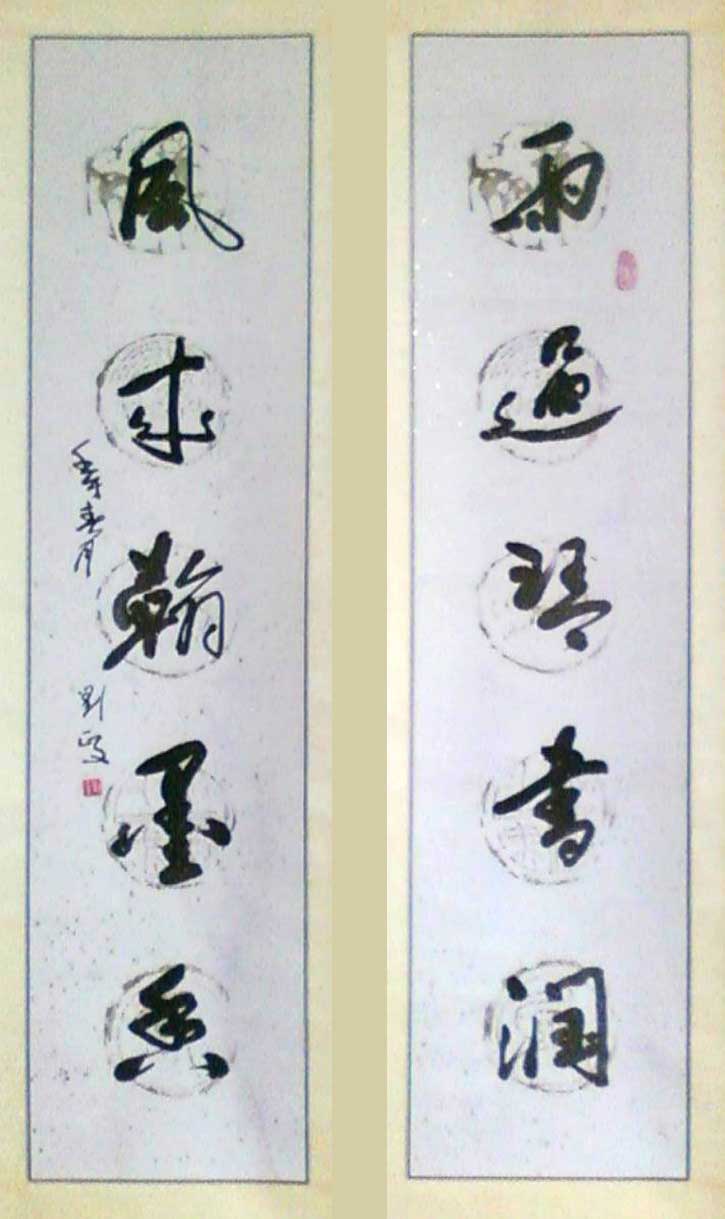 雨過琴書潤
風來翰墨香
春月
劉政